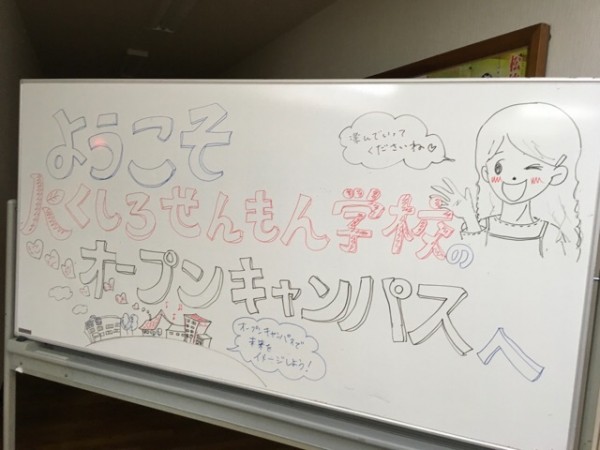 ようこそ
くしろせんもん学校の
オープンキャンパスへ
学んでいって
くださいね♡
オープンキャンパスで
未来を
イメージしよう!